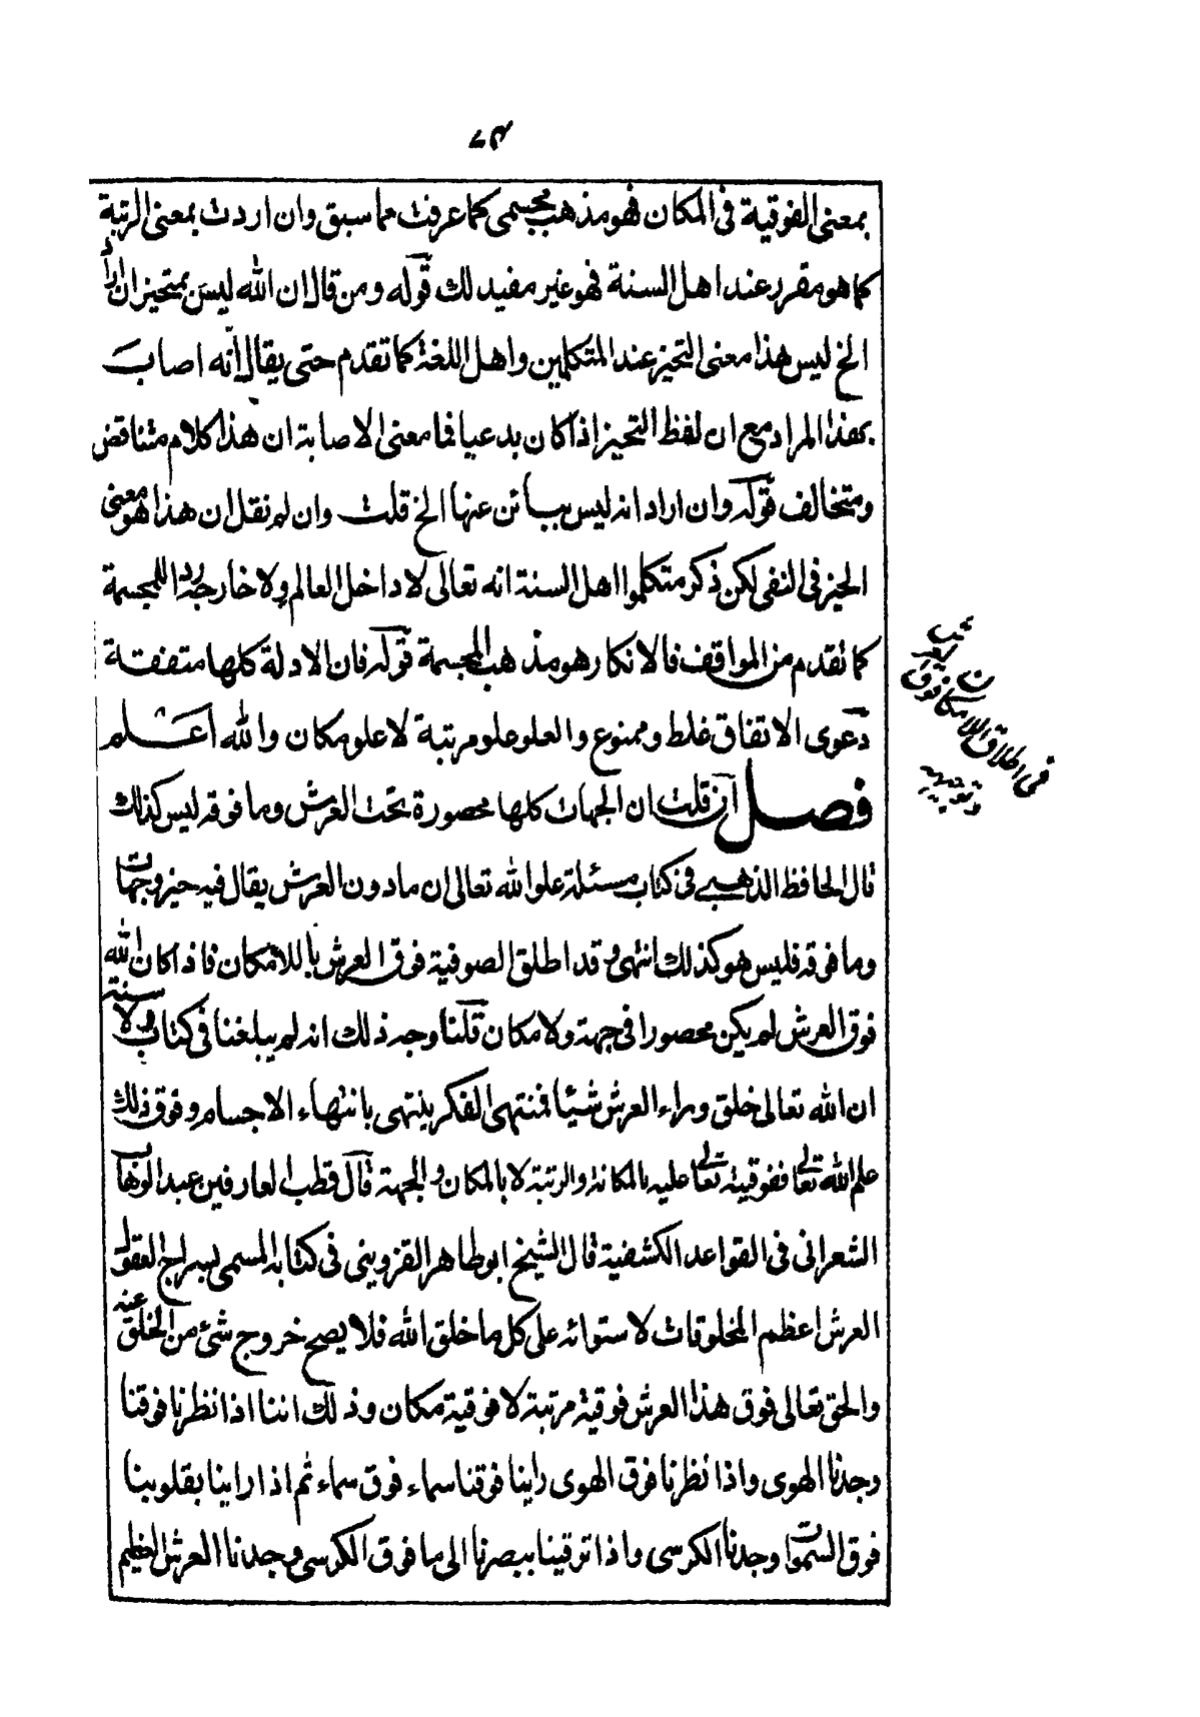 بمعنى الفوقية فى المكان فهو مذهب مجسمى كما عرفت مما سبق وان اردت بمعنى الرتبة
كما هو مقرر عند اهل السنة فهو غير مفيد لك قوله ومن قال ان الله ليس بمتحيز ان اراد
الخ ليس هذا معنى التحيز عند المتكلمين واهل اللغة كما تقدم حتى يقال انه اصاب
بهذا المراد مع ان لفظ التحيز اذا كان بدعيا فما معنى الاصابة ان هذا كلام متناقض
ومتخالف قوله وان اراد انه ليس ببائن عنها الخ قلت وان لم نقل ان هذا هو معنى
الحيز فى النفى لكن ذكر متكلموا اهل السنة انه تعالى لا داخل العالم ولا خارجه ردا للمجسمة
كما تقدم من المواقف فالانكار هو مذهب المجسمة قوله فان الادلة كلها متفقة
دعوى الاتفاق غلط وممنوع والعلو علو مرتبة لا علو مكان والله اعلم
فصل ان قلت ان الجهات كلها محصورة تحت العرش وما فوقه ليس كذلك
قال الحافظ الذهبي فى كتاب مسئلة علو الله تعالى ان مادون العرش يقال فيه حيز وجهات
وما فوقه فليس هو كذلك انتهى وقد اطلق الصوفية فوق العرش باللامكان فاذا كان الله
فوق العرش لم يكن محصورا فى جهة ولا مكان قلنا وجه ذلك انه لم يبلغنا فى كتاب ولا سنة
ان الله تعالى خلق وراء العرش شيئا فمنتهى الفكر ينتهى بانتهاء الاجسام وفوق ذلك
علم الله تعالى ففوقية تعالى عليه بالمكانة والرتبة لا بالمكان والجهة قال قطب العارفين عبد الوهاب
الشعرانى فى القواعد الكشفية قال الشيخ ابو طاهر القزوينى فى كتابه المسمى بسراج العقول
العرش اعظم المخلوقات لاستوائه على كل ما خلق الله فلا يصح خروج شئ من الخلق عنه
والحق تعالى فوق هذا العرش فوقية مرتبة لا فوقية مكان وذلك اننا اذا نظرنا فوقنا
وجدنا الهوى واذا نظرنا فوق الهوى راينا فوقنا سماء فوق سماء ثم اذا راينا بقلوبنا
فوق السموات وجدنا الكرسى واذا ترقينا ببصرنا الى ما فوق الكرسى وجدنا العرش العظيم
فى اطلاق اللامكان فوق العرش
وتوجيهه